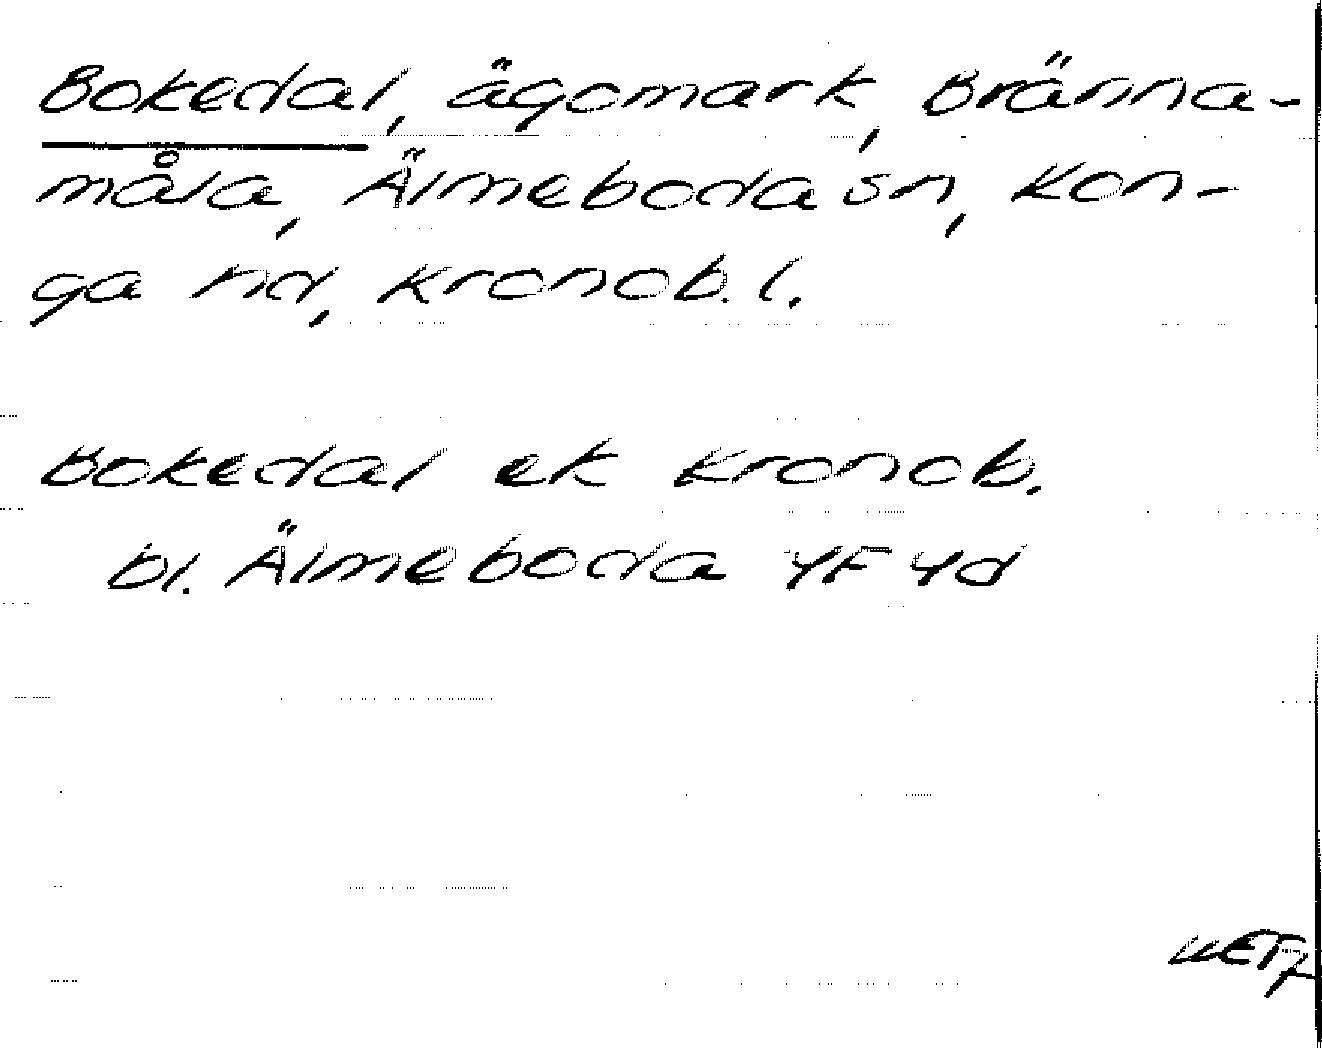 Bokedal, ägomark, Bränna-
måla, Älmeboda sn, Kon-
ga hd, Kronob. l.
Bokedal ek Kronob.
bl. Älmeboda 4F 4d